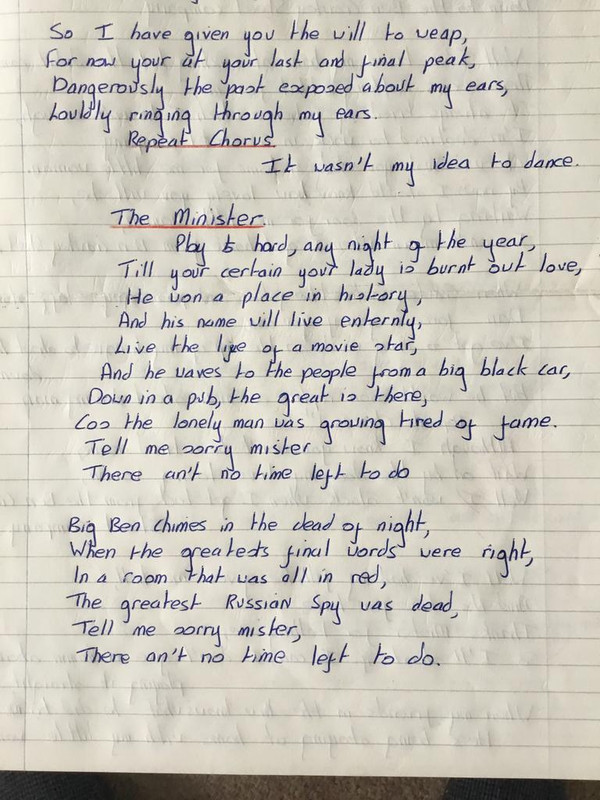 So I have given you the will to weap,
For now your at your last and final peak,
Dangerously the past exposed about my ears,
Louldly ringing through my ears.
Repeat Chorus
It wasn't my idea to dance.
The Minister
Play to hard, any night of the year,
Till your certain your lady is burnt out love,
He won a place in history,
And his name will live enternly,
Live the life of a movie star,
And he waves to the people from a big black car,
Down in a pub, the great is there,
Cos the lonely man was growing tired of fame.
Tell me sorry mister
There an't no time left to do
Big Ben chimes in the dead of night,
When the greatests final words were right,
In a room that was all in red,
The greatest Russian Spy was dead,
Tell me sorry mister,
There an't no time left to do.